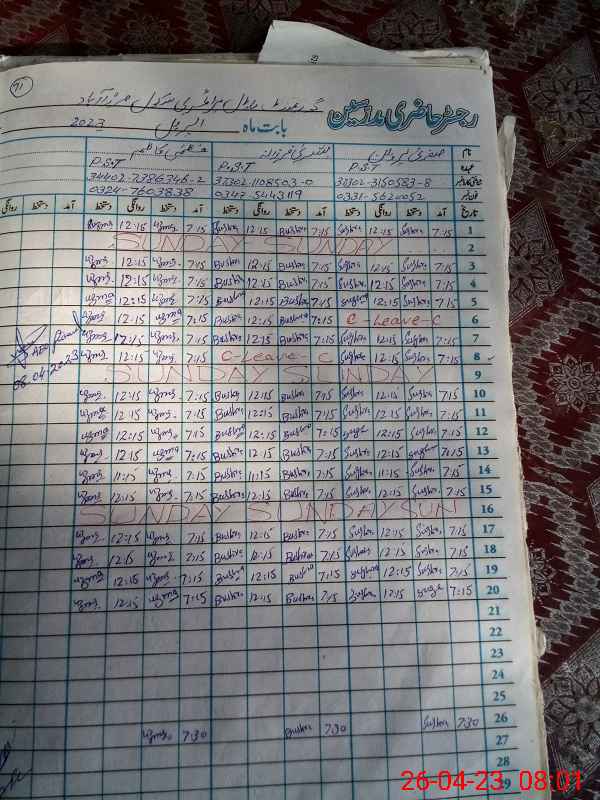 91
گورنمنٹ گرلز پرائمری سکول
رجسٹر حاضری مدرسین
بابت ماہ اپریل 2023
نام صغریٰ پروین بشریٰ فرزانہ عظمیٰ کاظم
عہدہ P.S.T P.S.T P.S.T
شناختی کارڈ نمبر 37302-3150583-8 37302-1108503-0 34402-7386346-2
فون نمبر 0331-5620052 0347-5443119 0324-7603838
تاریخ آمد دستخط روانگی دستخط آمد دستخط روانگی دستخط آمد دستخط روانگی دستخط آمد دستخط روانگی
1 7:15 Sughra 12:15 Sughra 7:15 Bushra 12:15 Bushra 7:15 Uzma 12:15 Uzma
2 SUNDAY SUNDAY
3 7:15 Sughra 12:15 Sughra 7:15 Bushra 12:15 Bushra 7:15 Uzma 12:15 Uzma
4 7:15 Sughra 12:15 Sughra 7:15 Bushra 12:15 Bushra 7:15 Uzma 12:15 Uzma
5 7:15 Sughra 12:15 Sughra 7:15 Bushra 12:15 Bushra 7:15 Uzma 12:15 Uzma
6 C-Leave-C 7:15 Bushra 12:15 Bushra 7:15 Uzma 12:15 Uzma
7 7:15 Sughra 12:15 Sughra 7:15 Bushra 12:15 Bushra 7:15 Uzma 12:15 Uzma
8 7:15 Sughra 12:15 Sughra C-Leave-C 7:15 Uzma 12:15 Uzma
08-04-2023
9 SUNDAY SUNDAY
10 7:15 Sughra 12:15 Sughra 7:15 Bushra 12:15 Bushra 7:15 Uzma 12:15 Uzma
11 7:15 Sughra 12:15 Sughra 7:15 Bushra 12:15 Bushra 7:15 Uzma 12:15 Uzma
12 7:15 Sughra 12:15 Sughra 7:15 Bushra 12:15 Bushra 7:15 Uzma 12:15 Uzma
13 7:15 Sughra 12:15 Sughra 7:15 Bushra 12:15 Bushra 7:15 Uzma 12:15 Uzma
14 7:15 Sughra 11:15 Sughra 7:15 Bushra 11:15 Bushra 7:15 Uzma 11:15 Uzma
15 7:15 Sughra 12:15 Sughra 7:15 Bushra 12:15 Bushra 7:15 Uzma 12:15 Uzma
16 SUNDAY SUNDAY SUN
17 7:15 Sughra 12:15 Sughra 7:15 Bushra 12:15 Bushra 7:15 Uzma 12:15 Uzma
18 7:15 Sughra 12:15 Sughra 7:15 Bushra 12:15 Bushra 7:15 Uzma 12:15 Uzma
19 7:15 Sughra 12:15 Sughra 7:15 Bushra 12:15 Bushra 7:15 Uzma 12:15 Uzma
20 7:15 Sughra 12:15 Sughra 7:15 Bushra 12:15 Bushra 7:15 Uzma 12:15 Uzma
21
22
23
24
25
26 7:30 Sughra 7:30 Bushra 7:30 Uzma
27
28
29
26-04-23 08:01